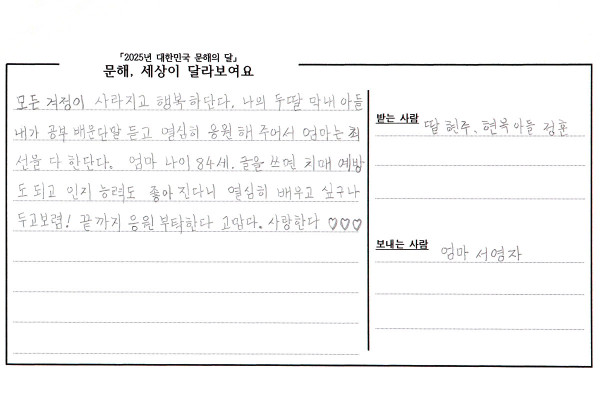 「2025년 대한민국 문해의 달」
문해, 세상이 달라보여요
모든 걱정이 사라지고 행복하단다. 나의 두딸 막내 아들
내가 공부 배운단말 듣고 열심히 응원해 주어서 엄마는 최
선을 다 한단다. 엄마 나이 84세. 글을 쓰면 치매 예방
도 되고 인지 능력도 좋아 진다니 열심히 배우고 싶구나
두고보렴! 끝까지 응원 부탁한다 고맙다. 사랑한다 ♡♡♡
받는 사람
딸 현주, 현복 아들 정훈
보내는 사람
엄마 서영자